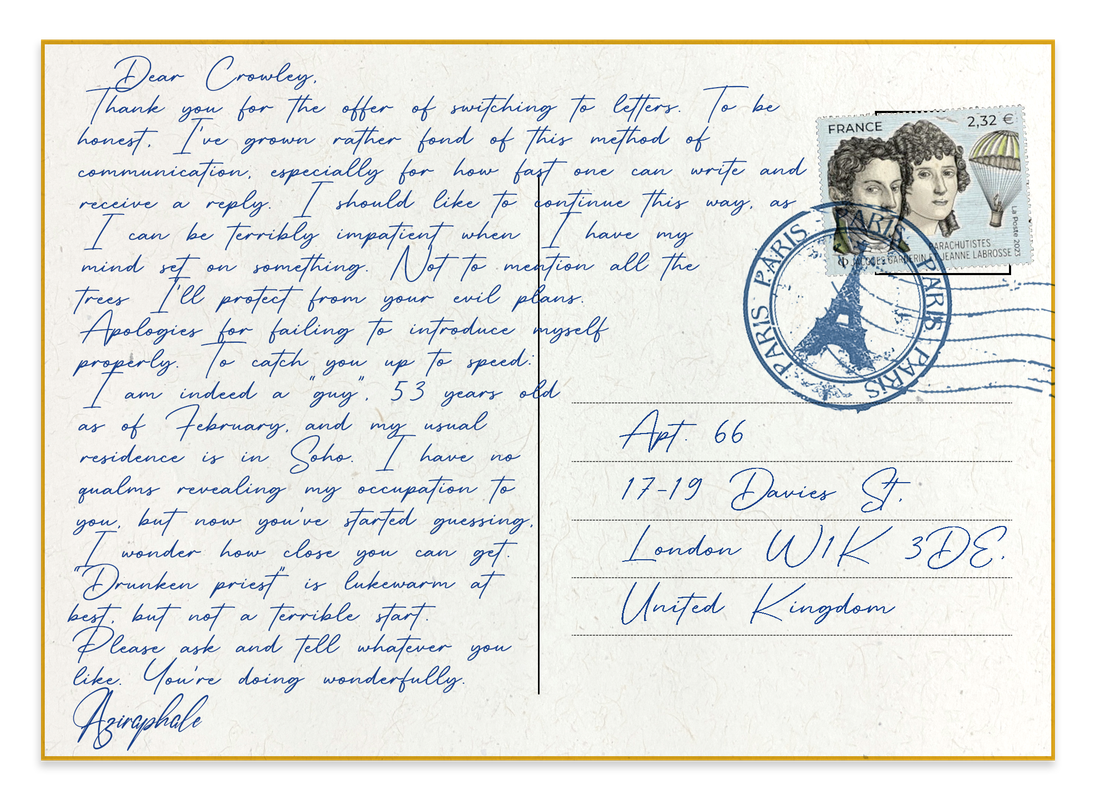 Dear Crowley,
Thank you for the offer of switching to letters. To be
honest, I've grown rather fond of this method of
communication, especially for how fast one can write and
receive a reply. I should like to continue this way, as
I can be terribly impatient when I have my
mind set on something. Not to mention all the
trees I'll protect from your evil plans.
Apologies for failing to introduce myself
properly. To catch you up to speed:
I am indeed a "guy", 53 years old
as of February, and my usual
residence is in Soho. I have no
qualms revealing my occupation to
you, but now you've started guessing,
I wonder how close you can get.
"Drunken priest" is lukewarm at
best, but not a terrible start.
Please ask and tell whatever you
like. You're doing wonderfully.
Aziraphale
FRANCE
2,32 €
La Poste 2023
PARACHUTISTES
JACQUES GARNERIN ET JEANNE LABROSSE
PARIS PARIS PARIS PARIS PARIS PARIS
Apt. 66
17-19 Davies St.
London W1K 3DE.
United Kingdom